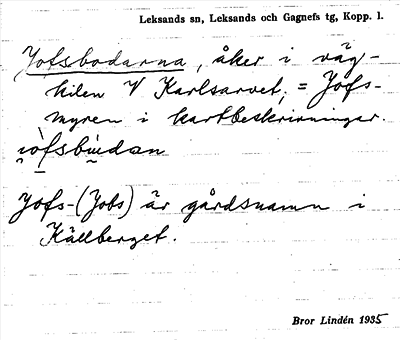 Leksands sn, Leksands och Gagnefs tg, Kopp. l.
Jofsbodarna, åker i väg-
kilen V Karlsarvet, = Jofs-
myren i kartbeskrivningar.
Jofs-(Jobs) är gårdsnamn i
Källberget.
Bror Lindén 1935